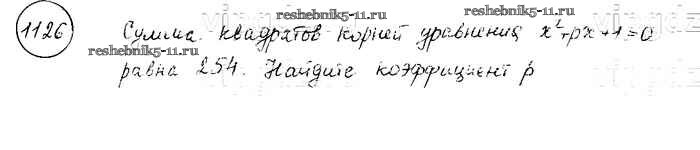 1126 Сумма квадратов корней уравнения x²+px+1=0
равна 254. Найдите коэффициент p
reshebnik5-11.ru
reshebnik5-11.ru
reshebnik5-11.ru